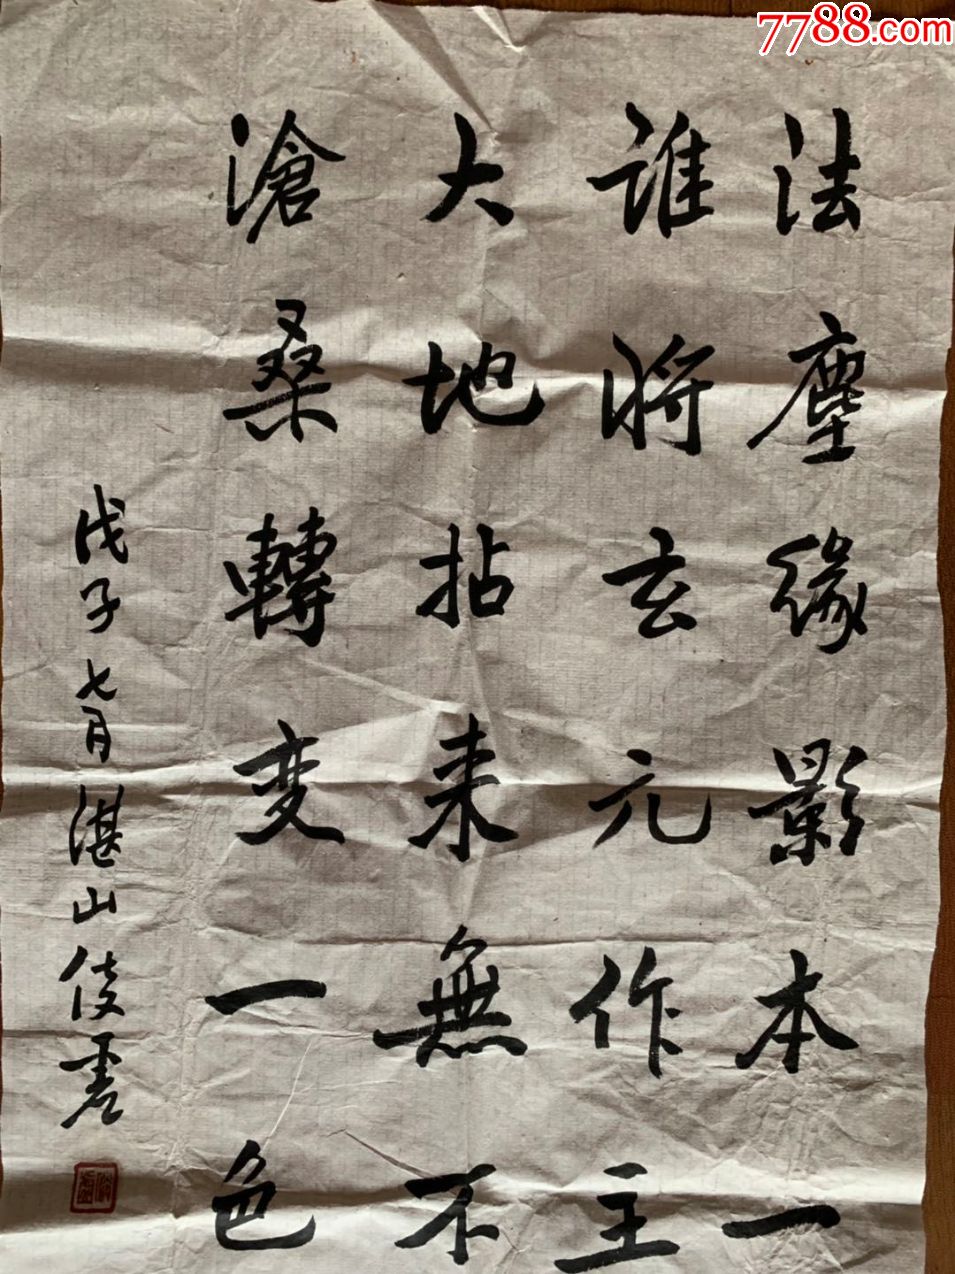 7788.com
法塵緣影本一
誰將玄元作主
大地拈来無不
滄桑轉变一色
戊子七月湛山